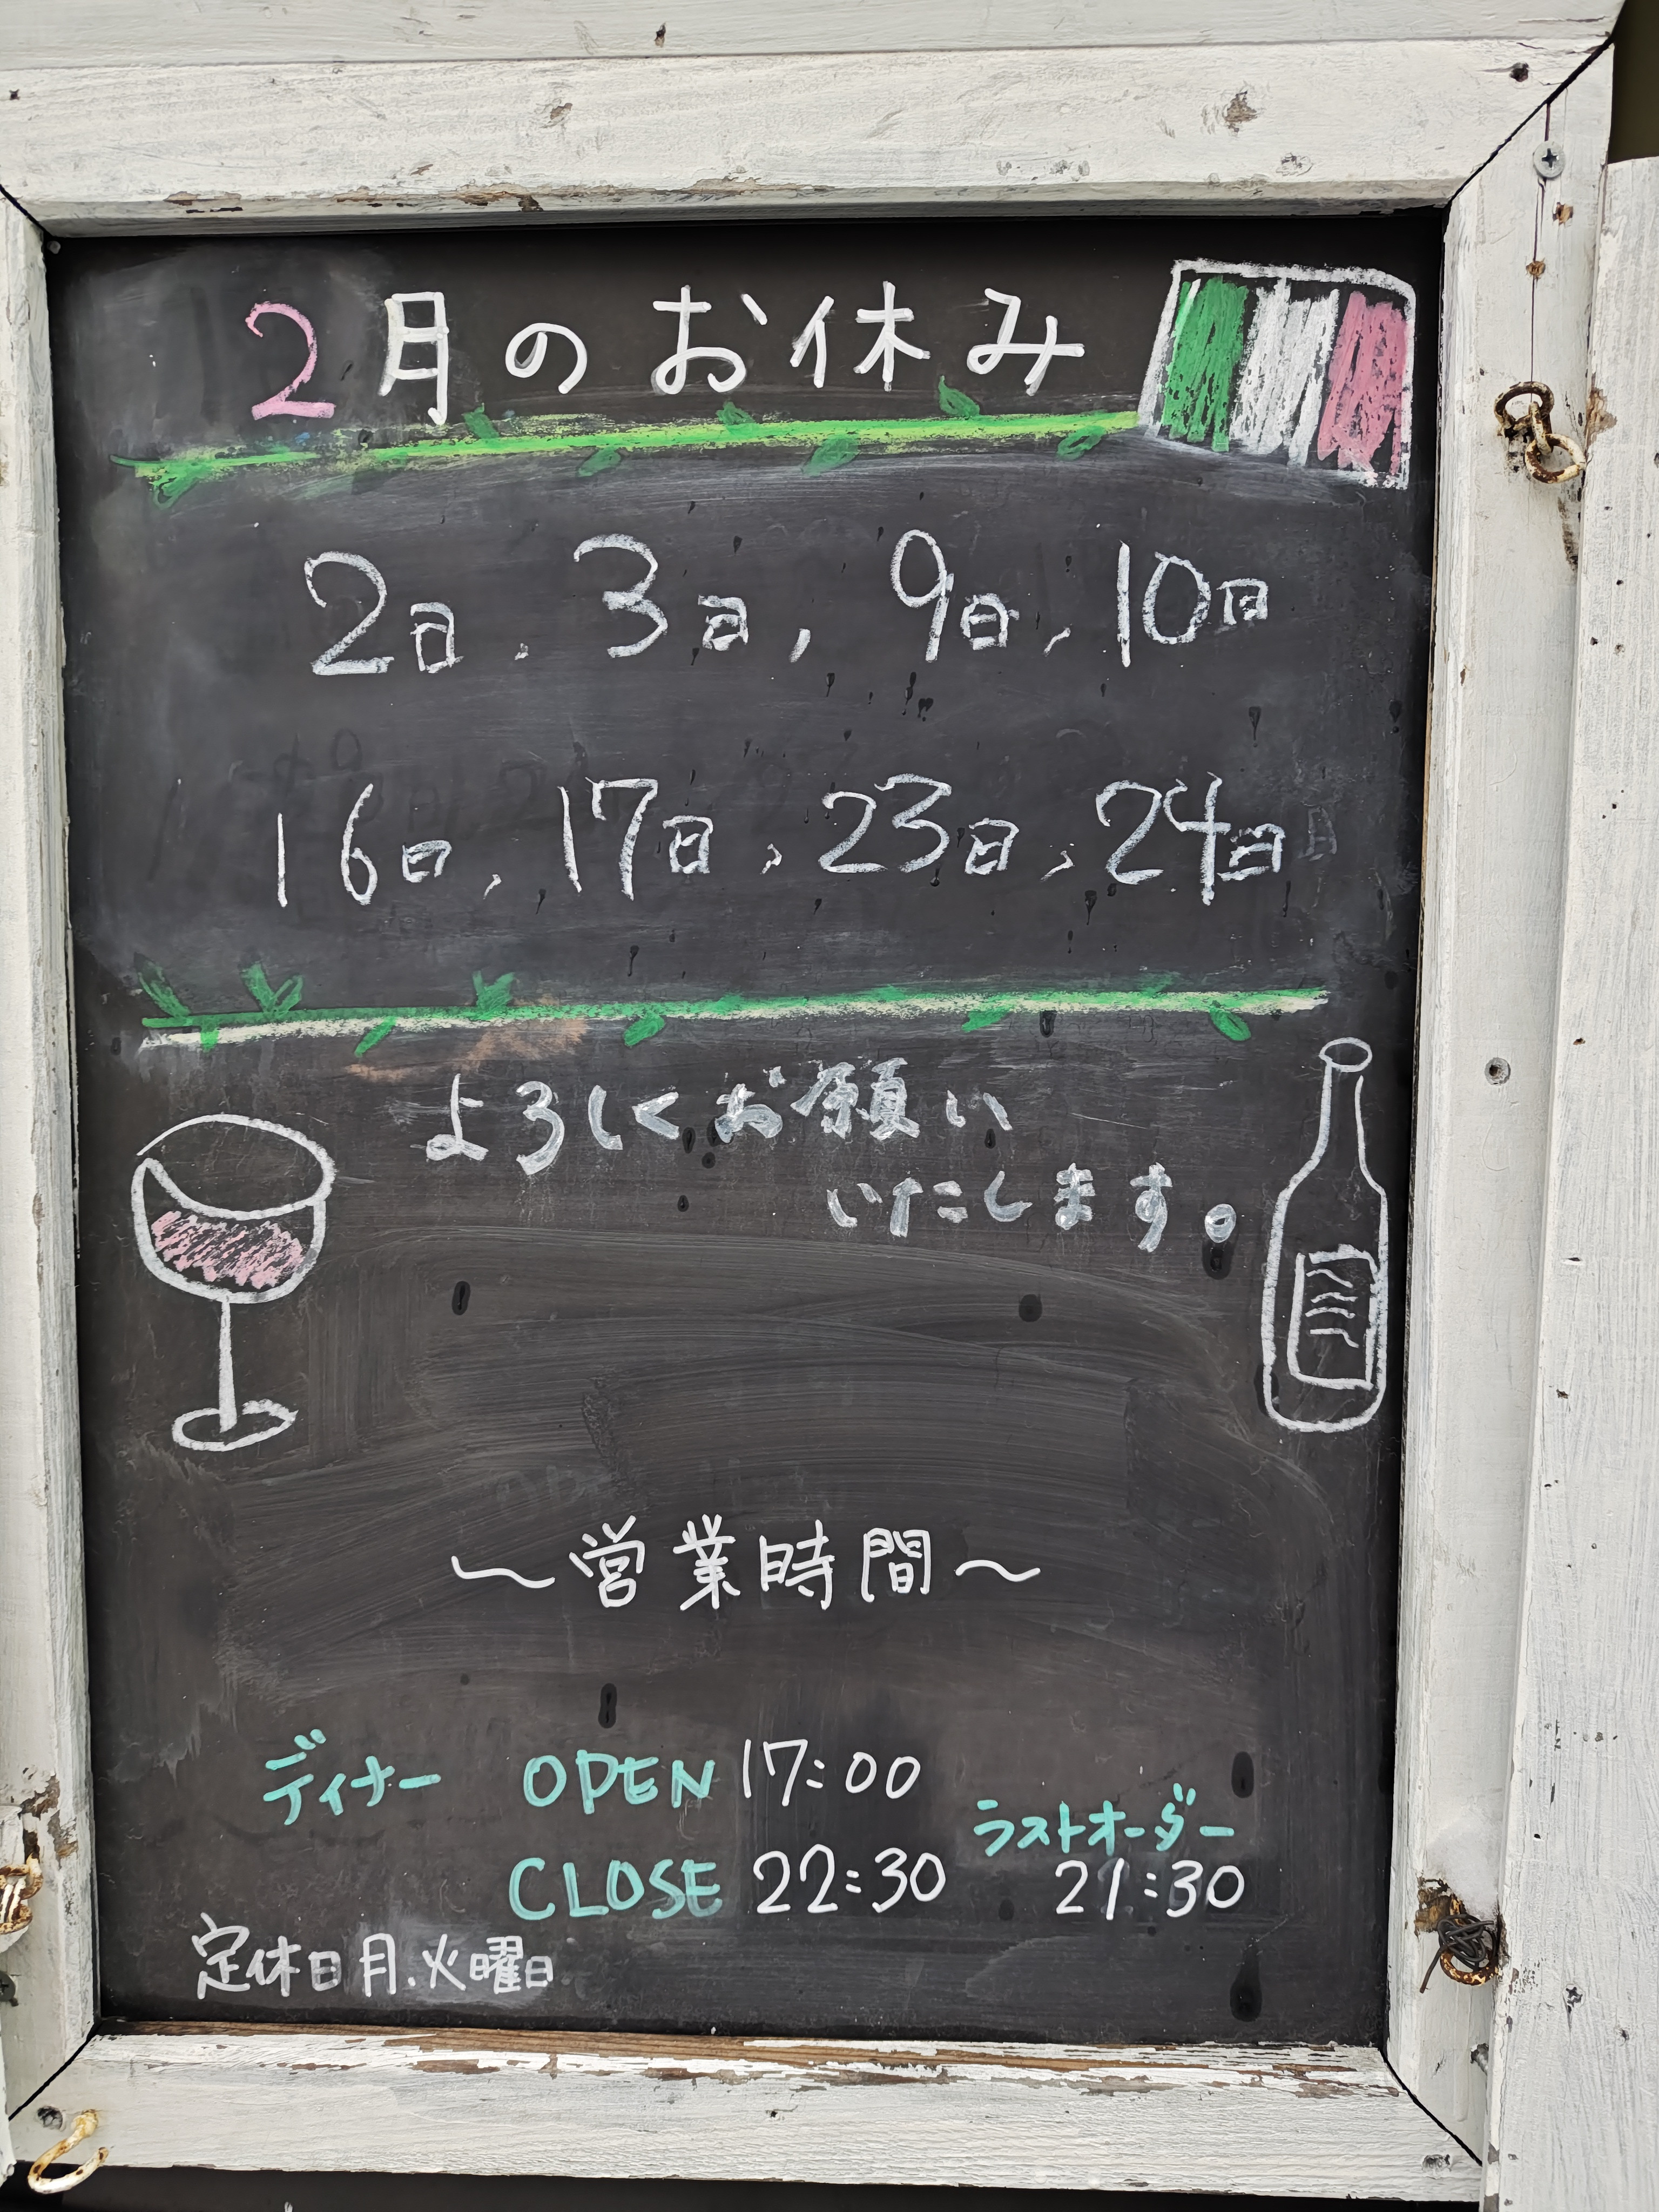 2月のお休み
2日、3日、9日、10日
16日、17日、23日、24日
よろしくお願い
いたします。
～営業時間～
ディナー OPEN 17:00
ラストオーダー
CLOSE 22:30 21:30
定休日月.火曜日